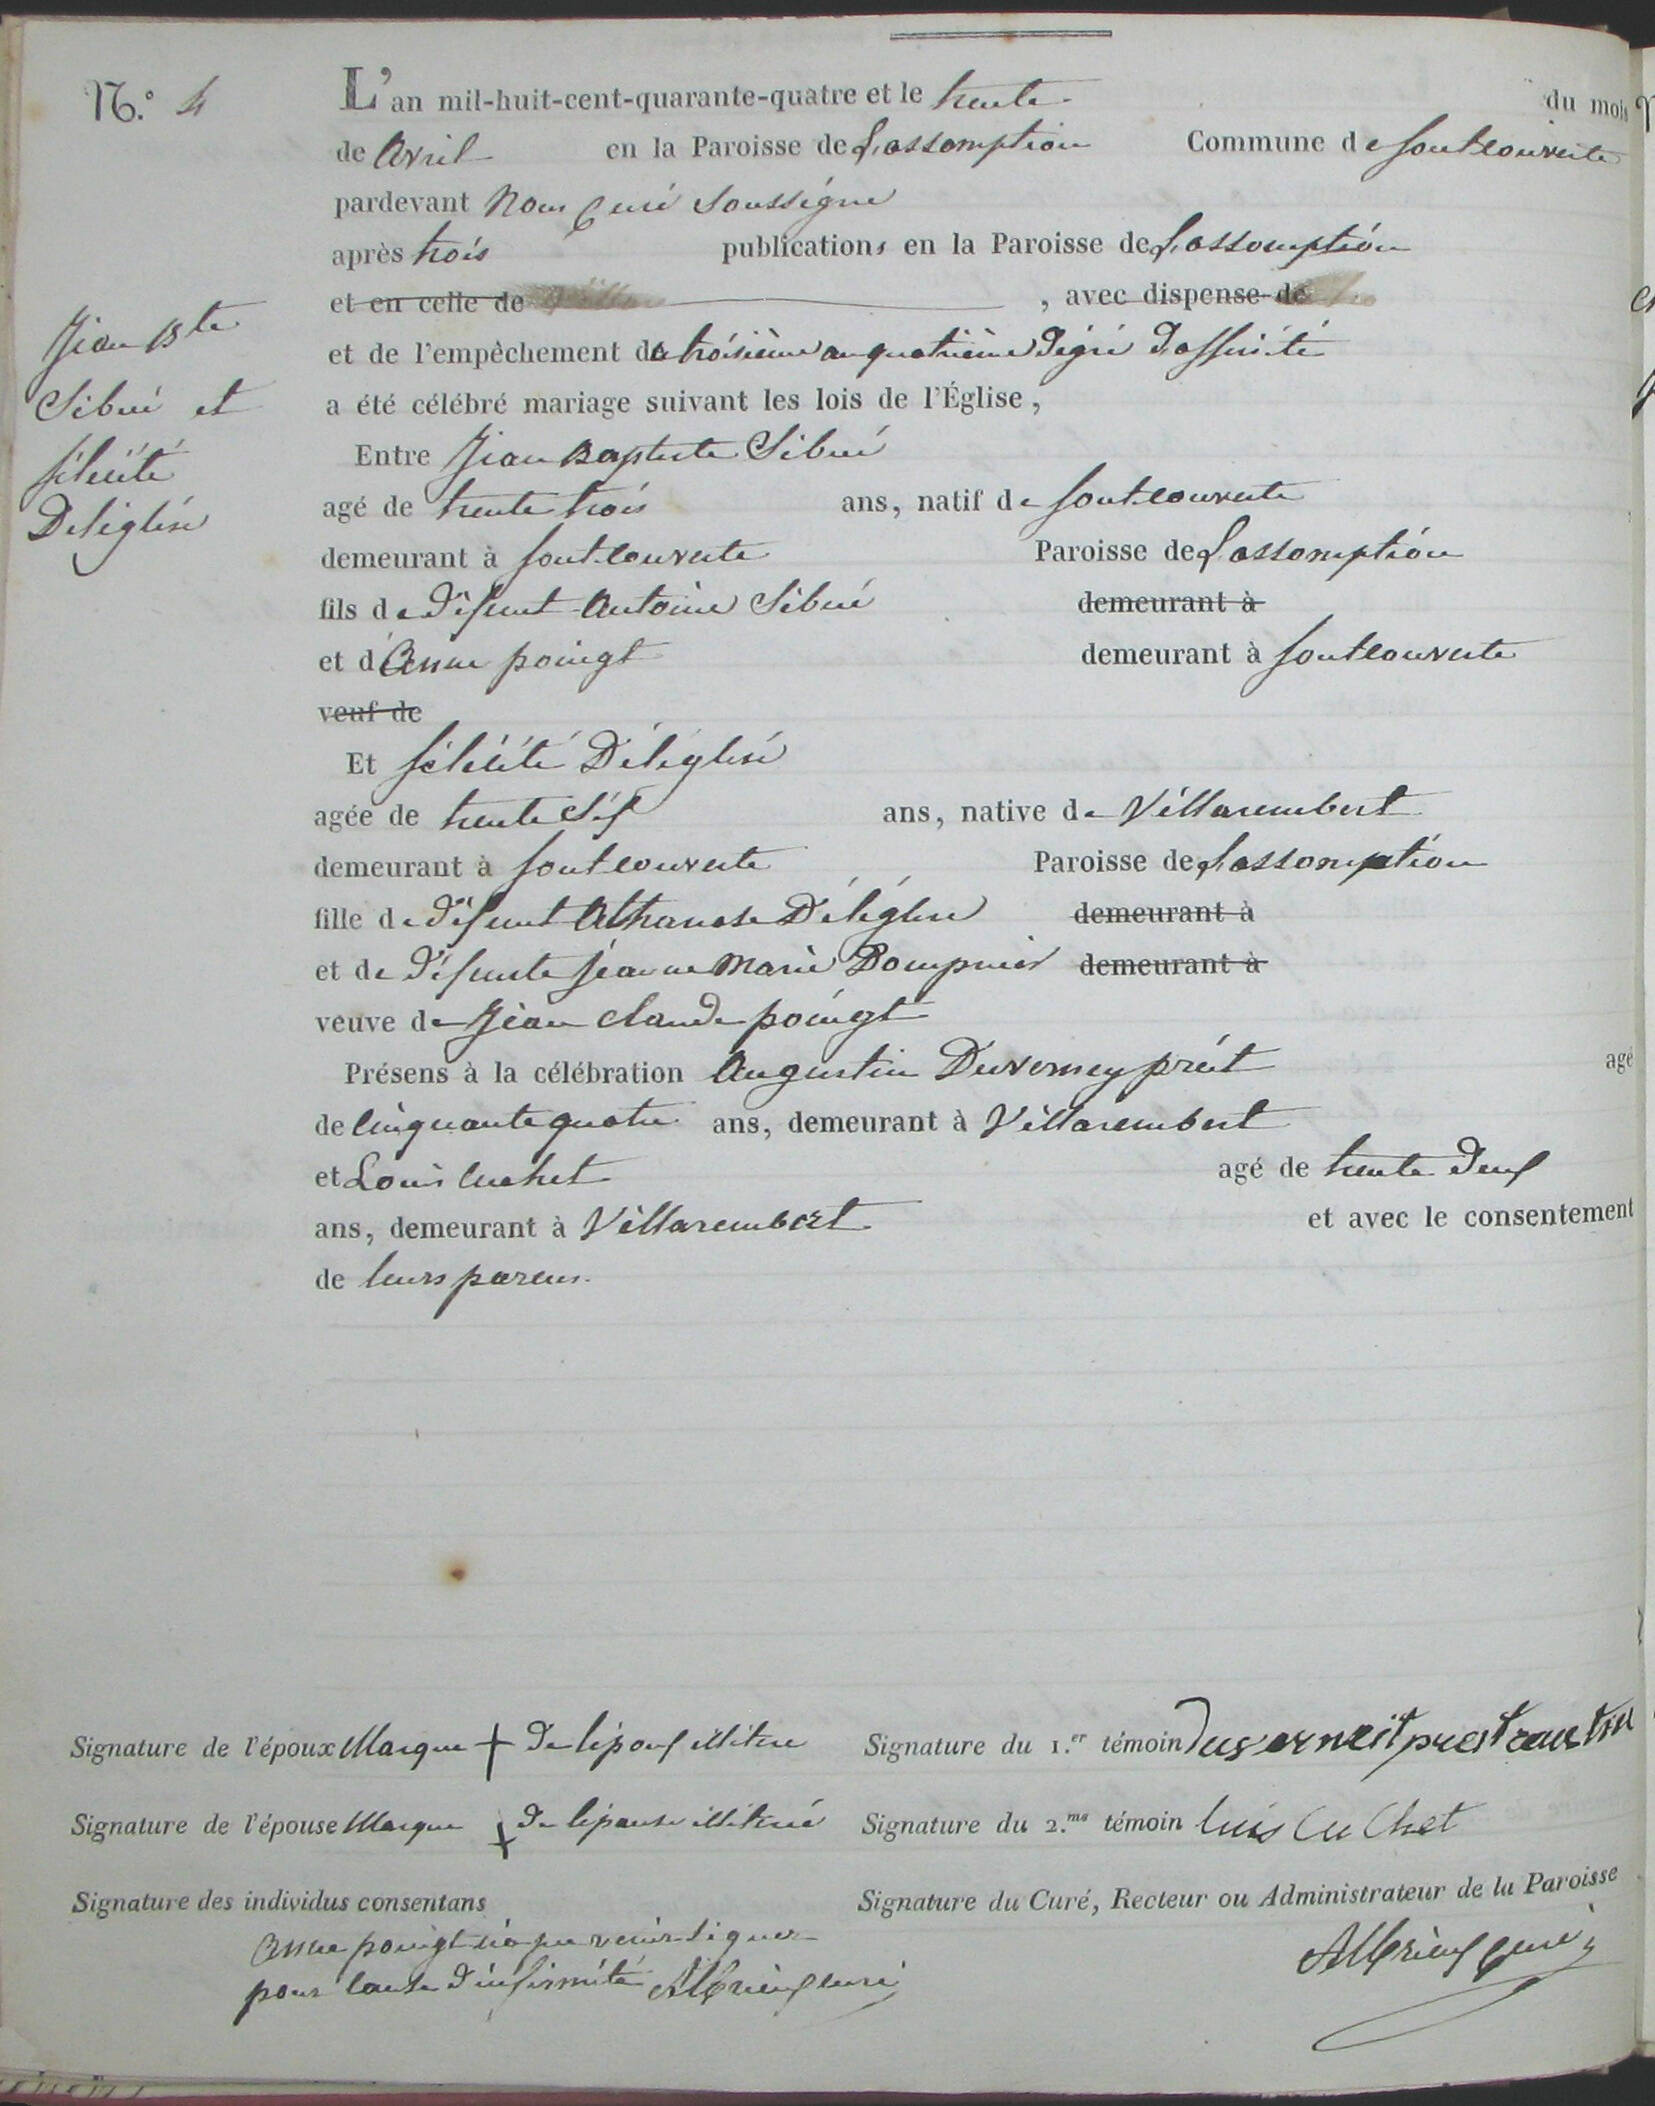 N.° 4
L'an mil-huit-cent-quarante-quatre et le trente du mois
de avril en la Paroisse de L'assomption Commune de fontcouverte
pardevant nous Curé soussigné
après trois publications en la Paroisse de L'assomption
et en celle de , avec dispense de
et de l'empêchement de troisième au quatrième dégré d'affinité
a été célébré mariage suivant les lois de l'Église,
Jean Bte
Sibué et
félicité
Deléglise
Entre Jean Baptiste Sibué
agé de trente trois ans, natif de fontcouverte
demeurant à fontcouverte Paroisse de L'assomption
fils de défunt Antoine Sibué demeurant à
et d'Anne poingt demeurant à fontcouverte
veuf de
Et félicité Déléglise
agée de trente six ans, native de Villarembert
demeurant à fontcouverte Paroisse de L'assomption
fille de défunt Athanase Déléglise demeurant à
et de défunte jeanne Marie Bompnier demeurant à
veuve de Jean claude poingt
Présens à la célébration Augustin Duverney prêt agé
de cinquante quatre ans, demeurant à Villarembert
et Louis Cuchet agé de trente deux
ans, demeurant à Villarembert et avec le consentement
de leurs parens.
Signature de l'époux Marque + de l'époux illitéré
Signature du 1.er témoin
Signature de l'épouse Marque + de l'épouse illitérée
Signature du 2.me témoin luis Cu Chet
Signature des individus consentans
Signature du Curé, Recteur ou Administrateur de la Paroisse
anne poingt n'a pu venir signer
pour cause d'infirmité curé
curé